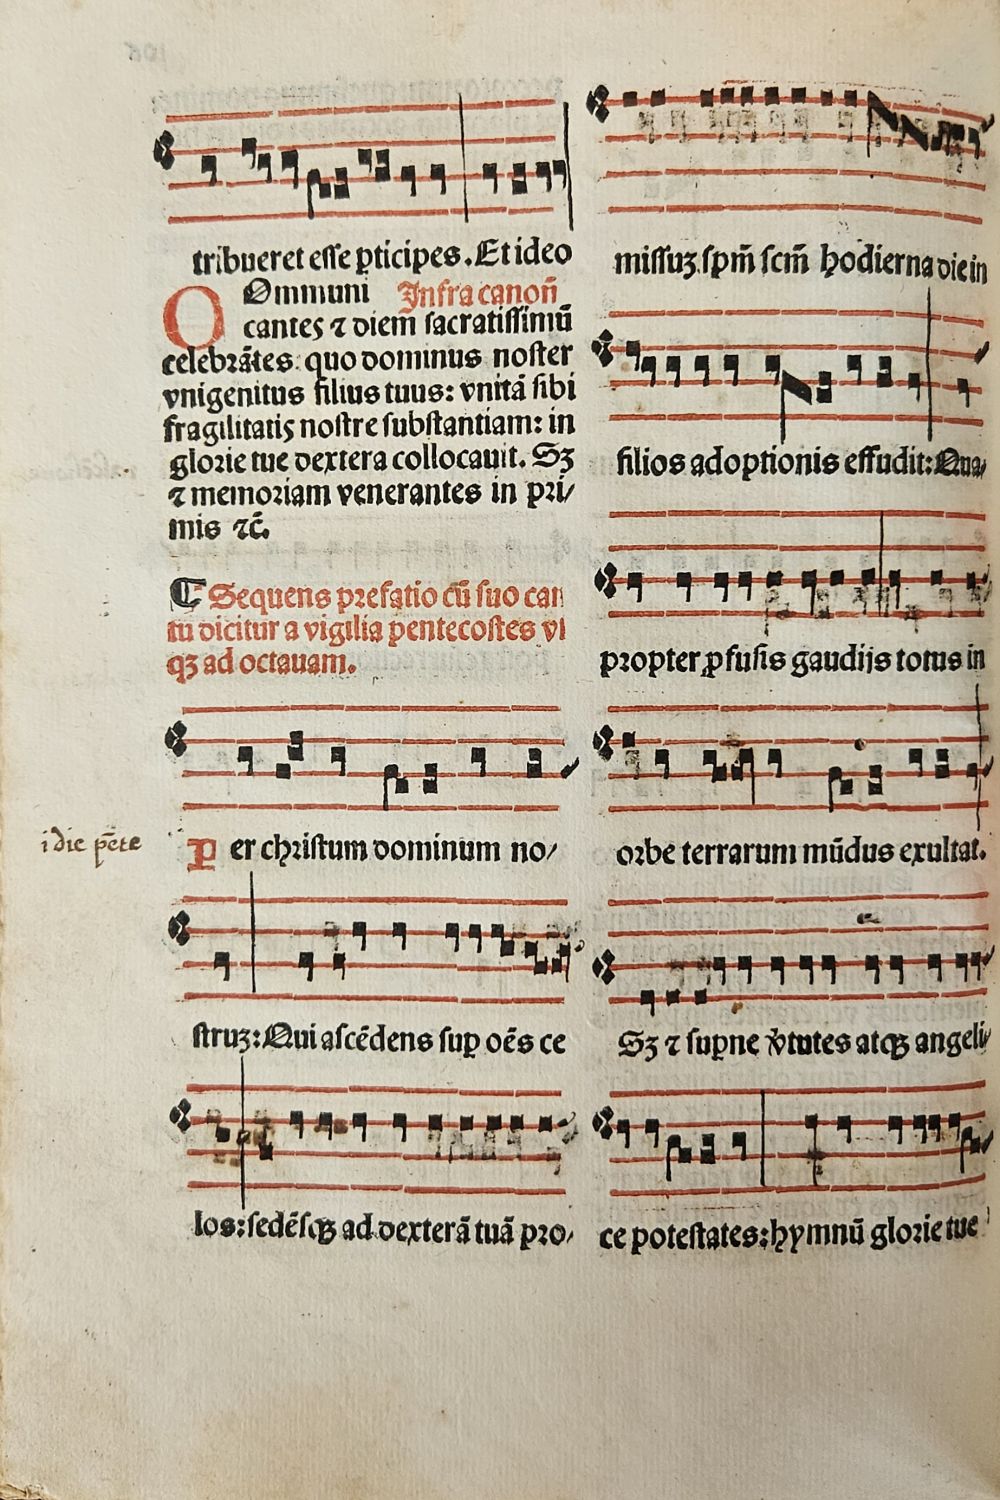 tribueret esse ꝑticipes. Et ideo
COmmuni Infra canoñ
cantes ⁊ diem sacratissimũ
celebrãtes quo dominus noster
vnigenitus filius tuus: vnitã sibi
fragilitatis nostre substantiam: in
glorie tue dextera collocauit. Sꝫ
⁊ memoriam venerantes in pri/
mis ⁊c̃.
Sequens prefatio cũ suo can
tu dicitur a vigilia pentecostes vſ
qꝫ ad octauam.
i die pẽte
Per christum dominum no/
struꝫ: Qui ascẽdens suꝑ oẽs ce
los: sedẽsqꝫ ad dexterã tuã pro/
missuꝫ spm̃ scm̃ hodierna die in
filios adoptionis effudit: Qua/
propter ꝓfusis gaudijs totus in
orbe terrarum mũdus exultat.
Sꝫ ⁊ supne v̾tutes atqꝫ angeli/
ce potestates: hymnũ glorie tue